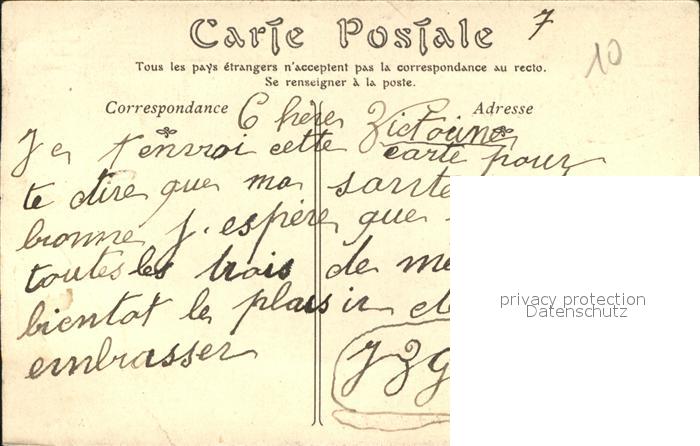 Carte Postale
7
10
Tous les pays étrangers n'acceptent pas la correspondance au recto.
Se renseigner à la poste.
Correspondance
Adresse
Chère Victorine
Je t'envoi cette carte pour
te dire que ma sante
bonne j'espère que
toutes les trois de mê
bientot le plaisir de
embrasser
privacy protection
Datenschutz